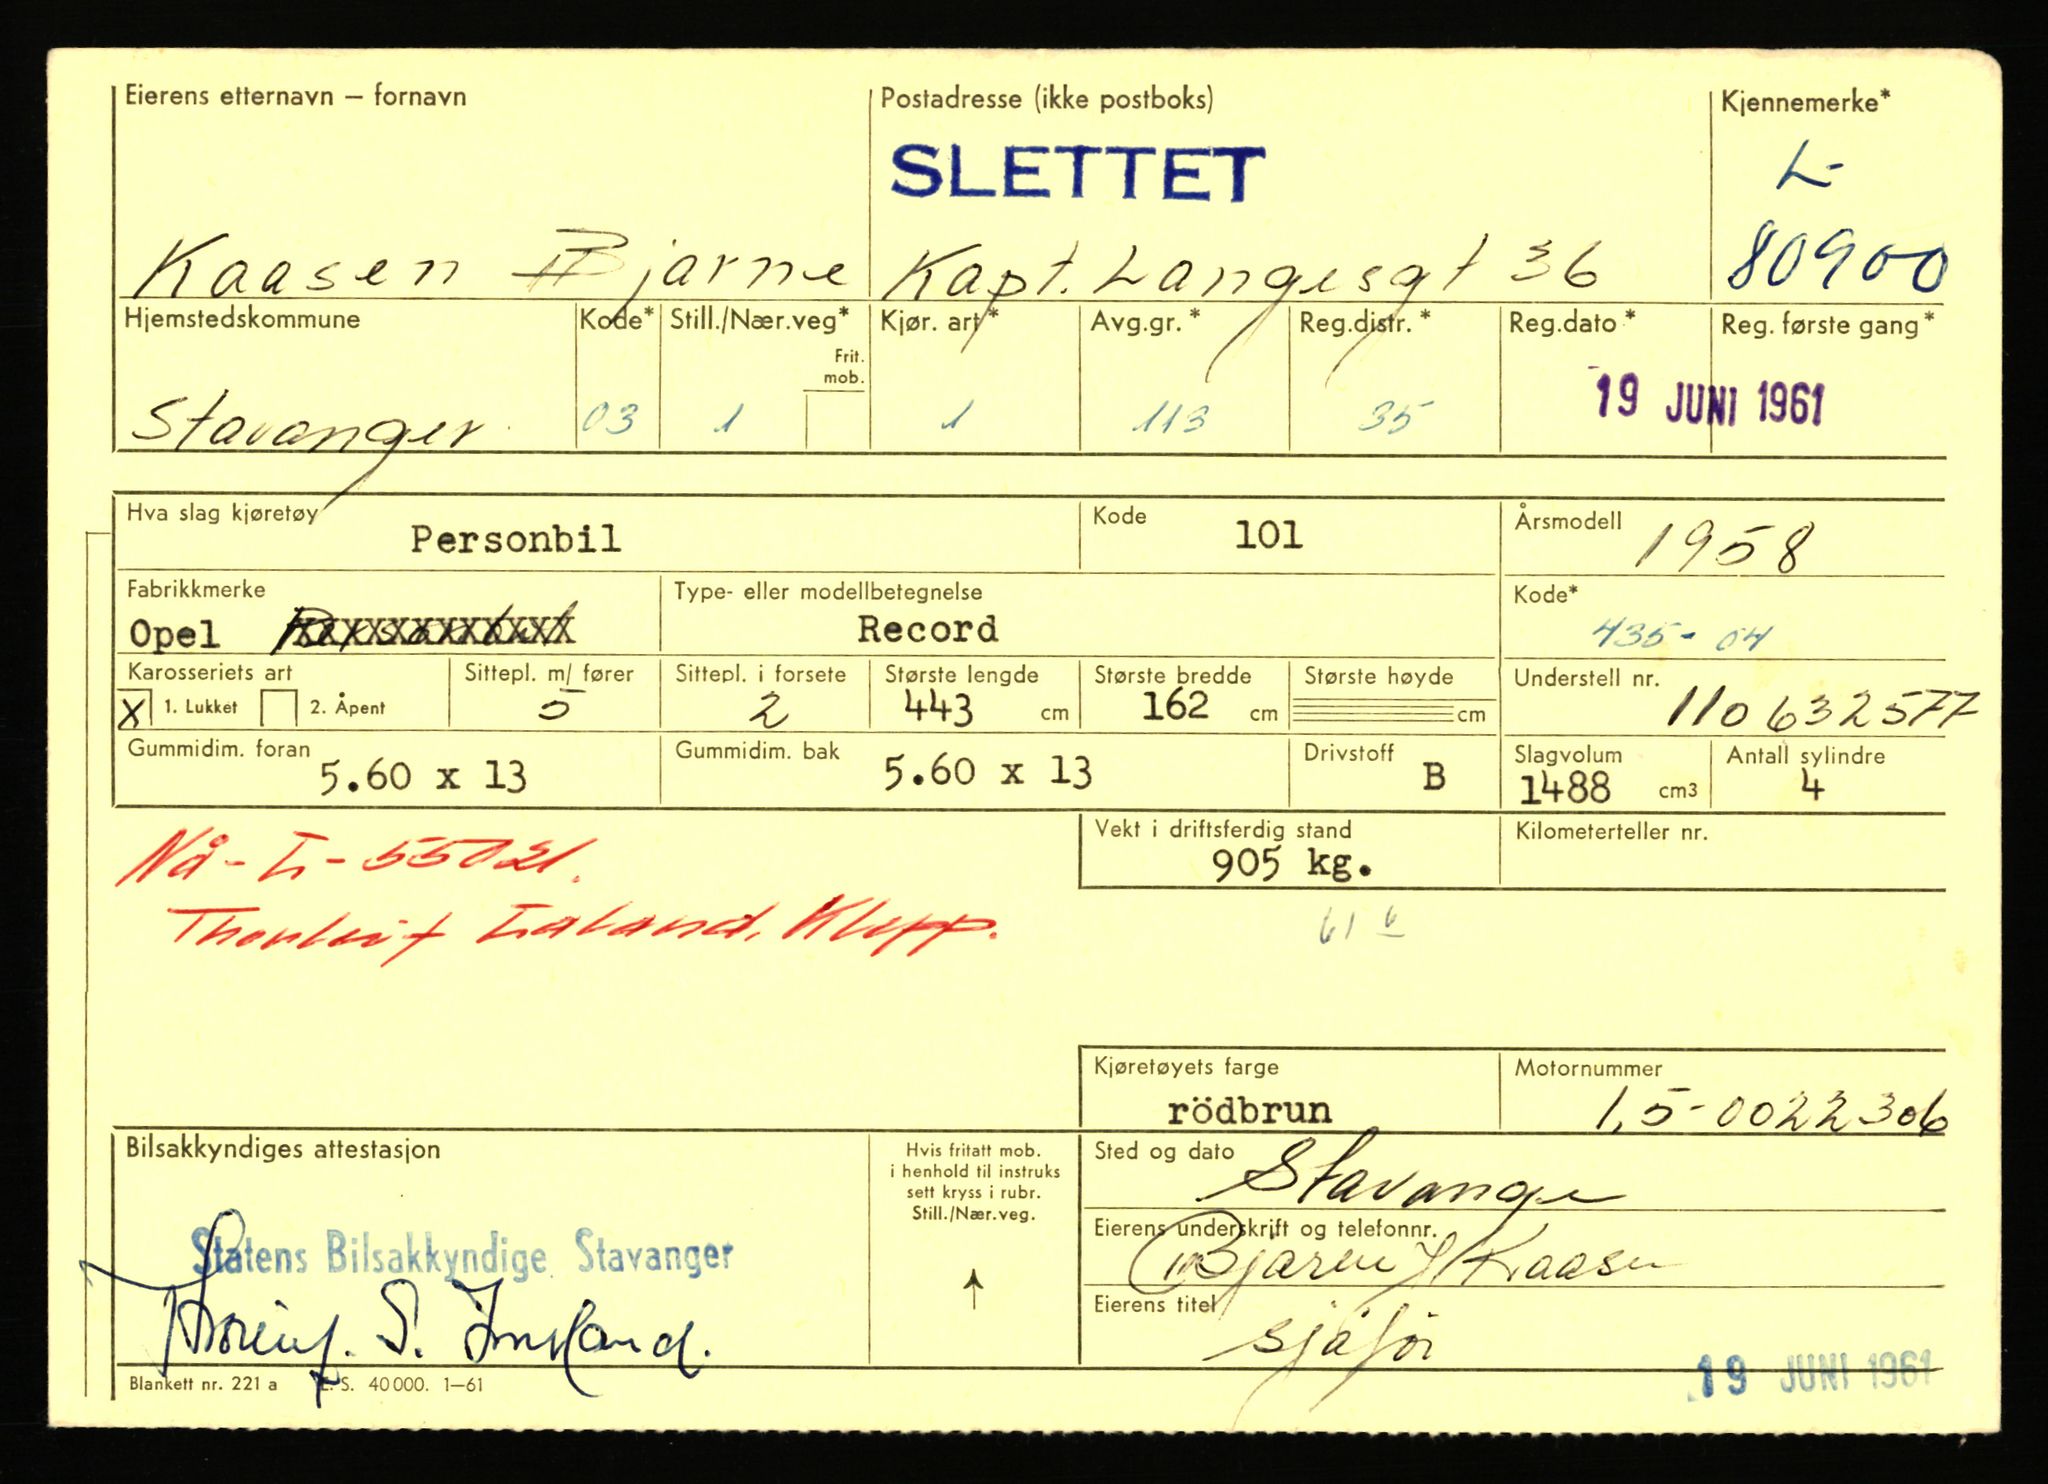 Eierens etternavn – fornavn
Postadresse (ikke postboks)
Kjennemerke*
SLETTET
L-
Kaasen Bjarne
Kapt. Langesgt 36
80900
Hjemstedskommune
Kode*
Still./Nær.veg*
Kjør. art*
Avg.gr.*
Reg.distr.*
Reg.dato*
Reg. første gang*
Frit.
mob.
Stavanger
03
1
1
113
35
19 JUNI 1961
Hva slag kjøretøy
Personbil
Kode
101
Årsmodell
1958
Fabrikkmerke
Opel
Type- eller modellbetegnelse
Record
Kode*
435-04
Karosseriets art
X 1. Lukket 2. Åpent
Sittepl. m/ fører
5
Sittepl. i forsete
2
Største lengde
443 cm
Største bredde
162 cm
Største høyde
cm
Understell nr.
110632577
Gummidim. foran
5.60 x 13
Gummidim. bak
5.60 x 13
Drivstoff
B
Slagvolum
1488 cm3
Antall sylindre
4
Nå-L-55021.
Vekt i driftsferdig stand
905 kg.
Kilometerteller nr.
Klepp.
61 6
Kjøretøyets farge
rödbrun
Motornummer
1,5-0022306
Bilsakkyndiges attestasjon
Hvis fritatt mob.
i henhold til instruks
sett kryss i rubr.
Still./Nær.veg.
Sted og dato
Stavanger
Statens Bilsakkyndige Stavanger
Eierens underskrift og telefonnr.
Bjarne J Kaasen
Eierens titel
sjåfør
19 JUNI 1961
Blankett nr. 221 a E. S. 40 000. 1–61